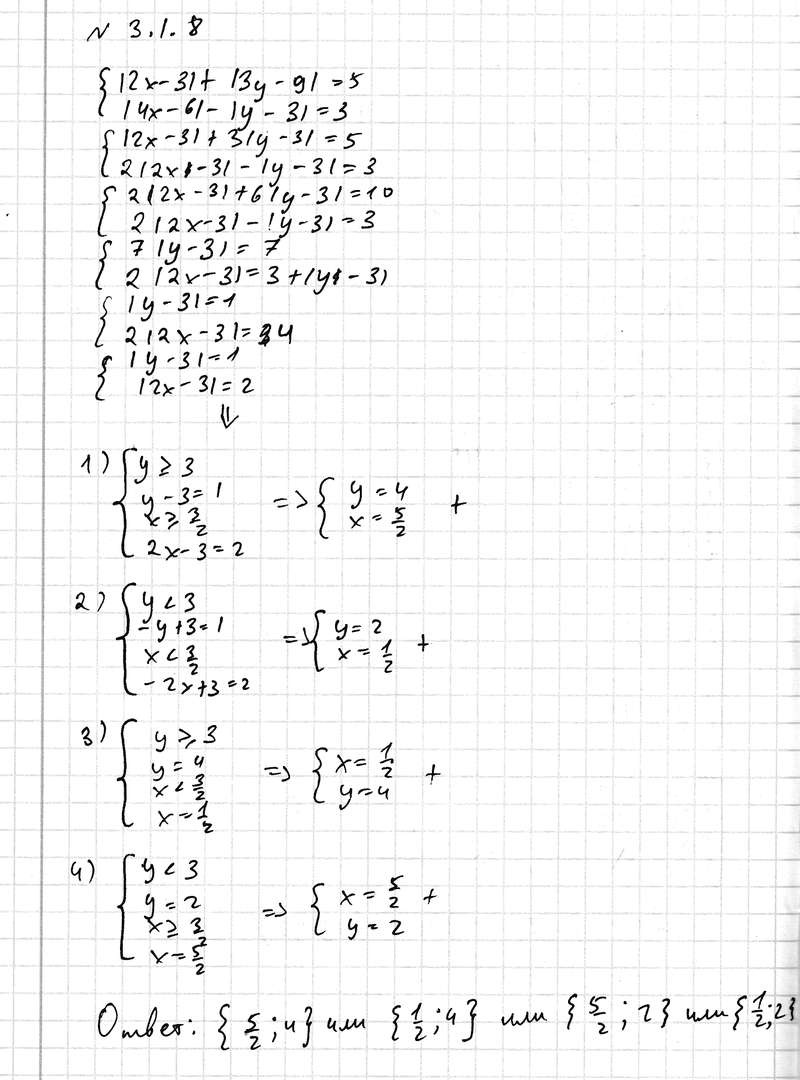 N 3.1.8
{ |2x-3| + |3y-9| = 5
|4x-6| - |y-3| = 3
{ |2x-3| + 3|y-3| = 5
2|2x-3| - |y-3| = 3
{ 2|2x-3| + 6|y-3| = 10
2|2x-3| - |y-3| = 3
{ 7|y-3| = 7
2|2x-3| = 3 + |y-3|
{ |y-3| = 1
2|2x-3| = 4
{ |y-3| = 1
|2x-3| = 2
⇓
1) { y ≥ 3
y-3 = 1 => { y = 4 +
x ≥ 3/2 x = 5/2
2x-3 = 2
2) { y < 3
-y+3 = 1 => { y = 2 +
x < 3/2 x = 1/2
-2x+3 = 2
3) { y ≥ 3
y = 4 => { x = 1/2 +
x < 3/2 y = 4
x = 1/2
4) { y < 3
y = 2 => { x = 5/2 +
x ≥ 3/2 y = 2
x = 5/2
Ответ: {5/2; 4} или {1/2; 4} или {5/2; 2} или {1/2; 2}